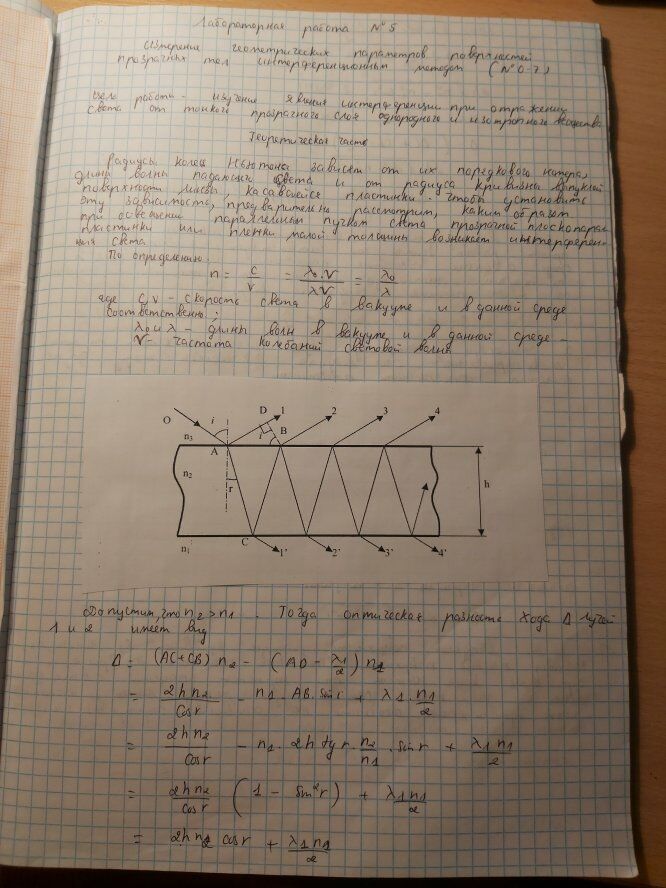 Лабораторная работа №5
Измерение геометрических параметров поверхностей
прозрачных тел интерференционным методом (№ 0-7)
Цель работы - изучение явления интерференции при отражении
света от тонкого прозрачного слоя однородного и изотропного вещества
Теоретическая часть
Радиусы колец Ньютона зависят от их порядкового номера,
длины волны падающего света и от радиуса кривизны выпуклой
поверхности линзы, касающейся пластинки. Чтобы установить
эту зависимость, предварительно рассмотрим, каким образом
при освещении параллельным пучком света прозрачной плоскопарал.
пластинки или пленки малой толщины возникает интерферен-
ция света
По определению.
n = c/v = λ₀·ν/λν = λ₀/λ
где c, v - скорость света в вакууме и в данной среде
соответственно;
λ₀ и λ - длины волн в вакууме и в данной среде -
ν - частота колебаний световой волны
O i D 1 i B 2 3 4
n₃ A
n₂ r h
C 1' 2' 3' 4'
n₁
Допустим, что n₂ > n₁. Тогда оптическая разность хода Δ лучей
1 и 2 имеет вид
Δ = (AC+CB) n₂ - (AD - λ₁/2) n₁
= 2hn₂/cos r - n₁·AB·sin i + λ₁·n₁/2
= 2hn₂/cos r - n₁·2h tg r·n₂/n₁·sin r + λ₁n₁/2
= 2hn₂/cos r (1 - sin²r) + λ₁n₁/2
= 2hn₂ cos r + λ₁n₁/2